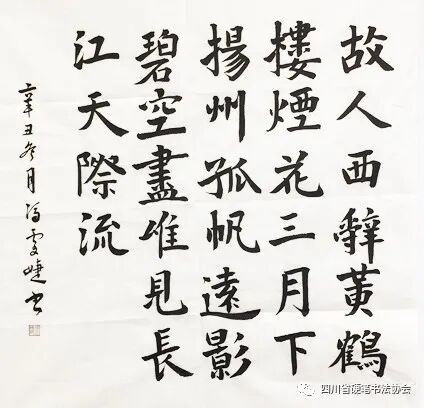 故人西辭黃鶴
樓煙花三月下
揚州孤帆遠影
碧空盡唯見長
江天際流
辛丑冬月冯雯婕书
四川省硬笔书法协会